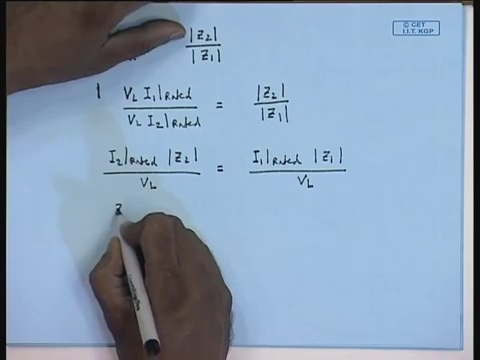 © CET
I.I.T. KGP
|Z₂|
|Z₁|
V_L I₁|Rated / V_L I₂|Rated = |Z₂| / |Z₁|
I₂|Rated |Z₂| / V_L = I₁|Rated |Z₁| / V_L